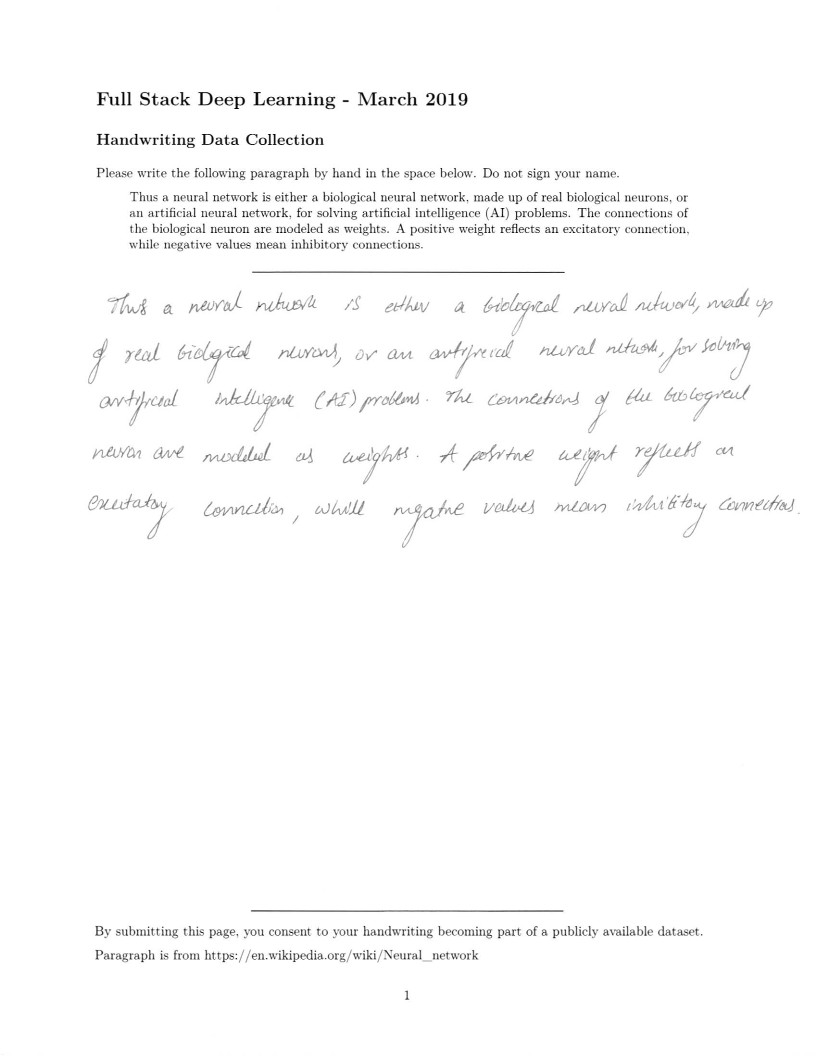 Full Stack Deep Learning - March 2019
Handwriting Data Collection
Please write the following paragraph by hand in the space below. Do not sign your name.
Thus a neural network is either a biological neural network, made up of real biological neurons, or
an artificial neural network, for solving artificial intelligence (AI) problems. The connections of
the biological neuron are modeled as weights. A positive weight reflects an excitatory connection,
while negative values mean inhibitory connections.
Thus a neural network is either a biological neural network, made up
of real biological neurons, or an artificial neural network, for solving
artificial intelligence (AI) problems. The connections of the biological
neuron are modeled as weights. A positive weight reflects an
excitatory connection, while negative values mean inhibitory connections.
By submitting this page, you consent to your handwriting becoming part of a publicly available dataset.
Paragraph is from https://en.wikipedia.org/wiki/Neural_network
1